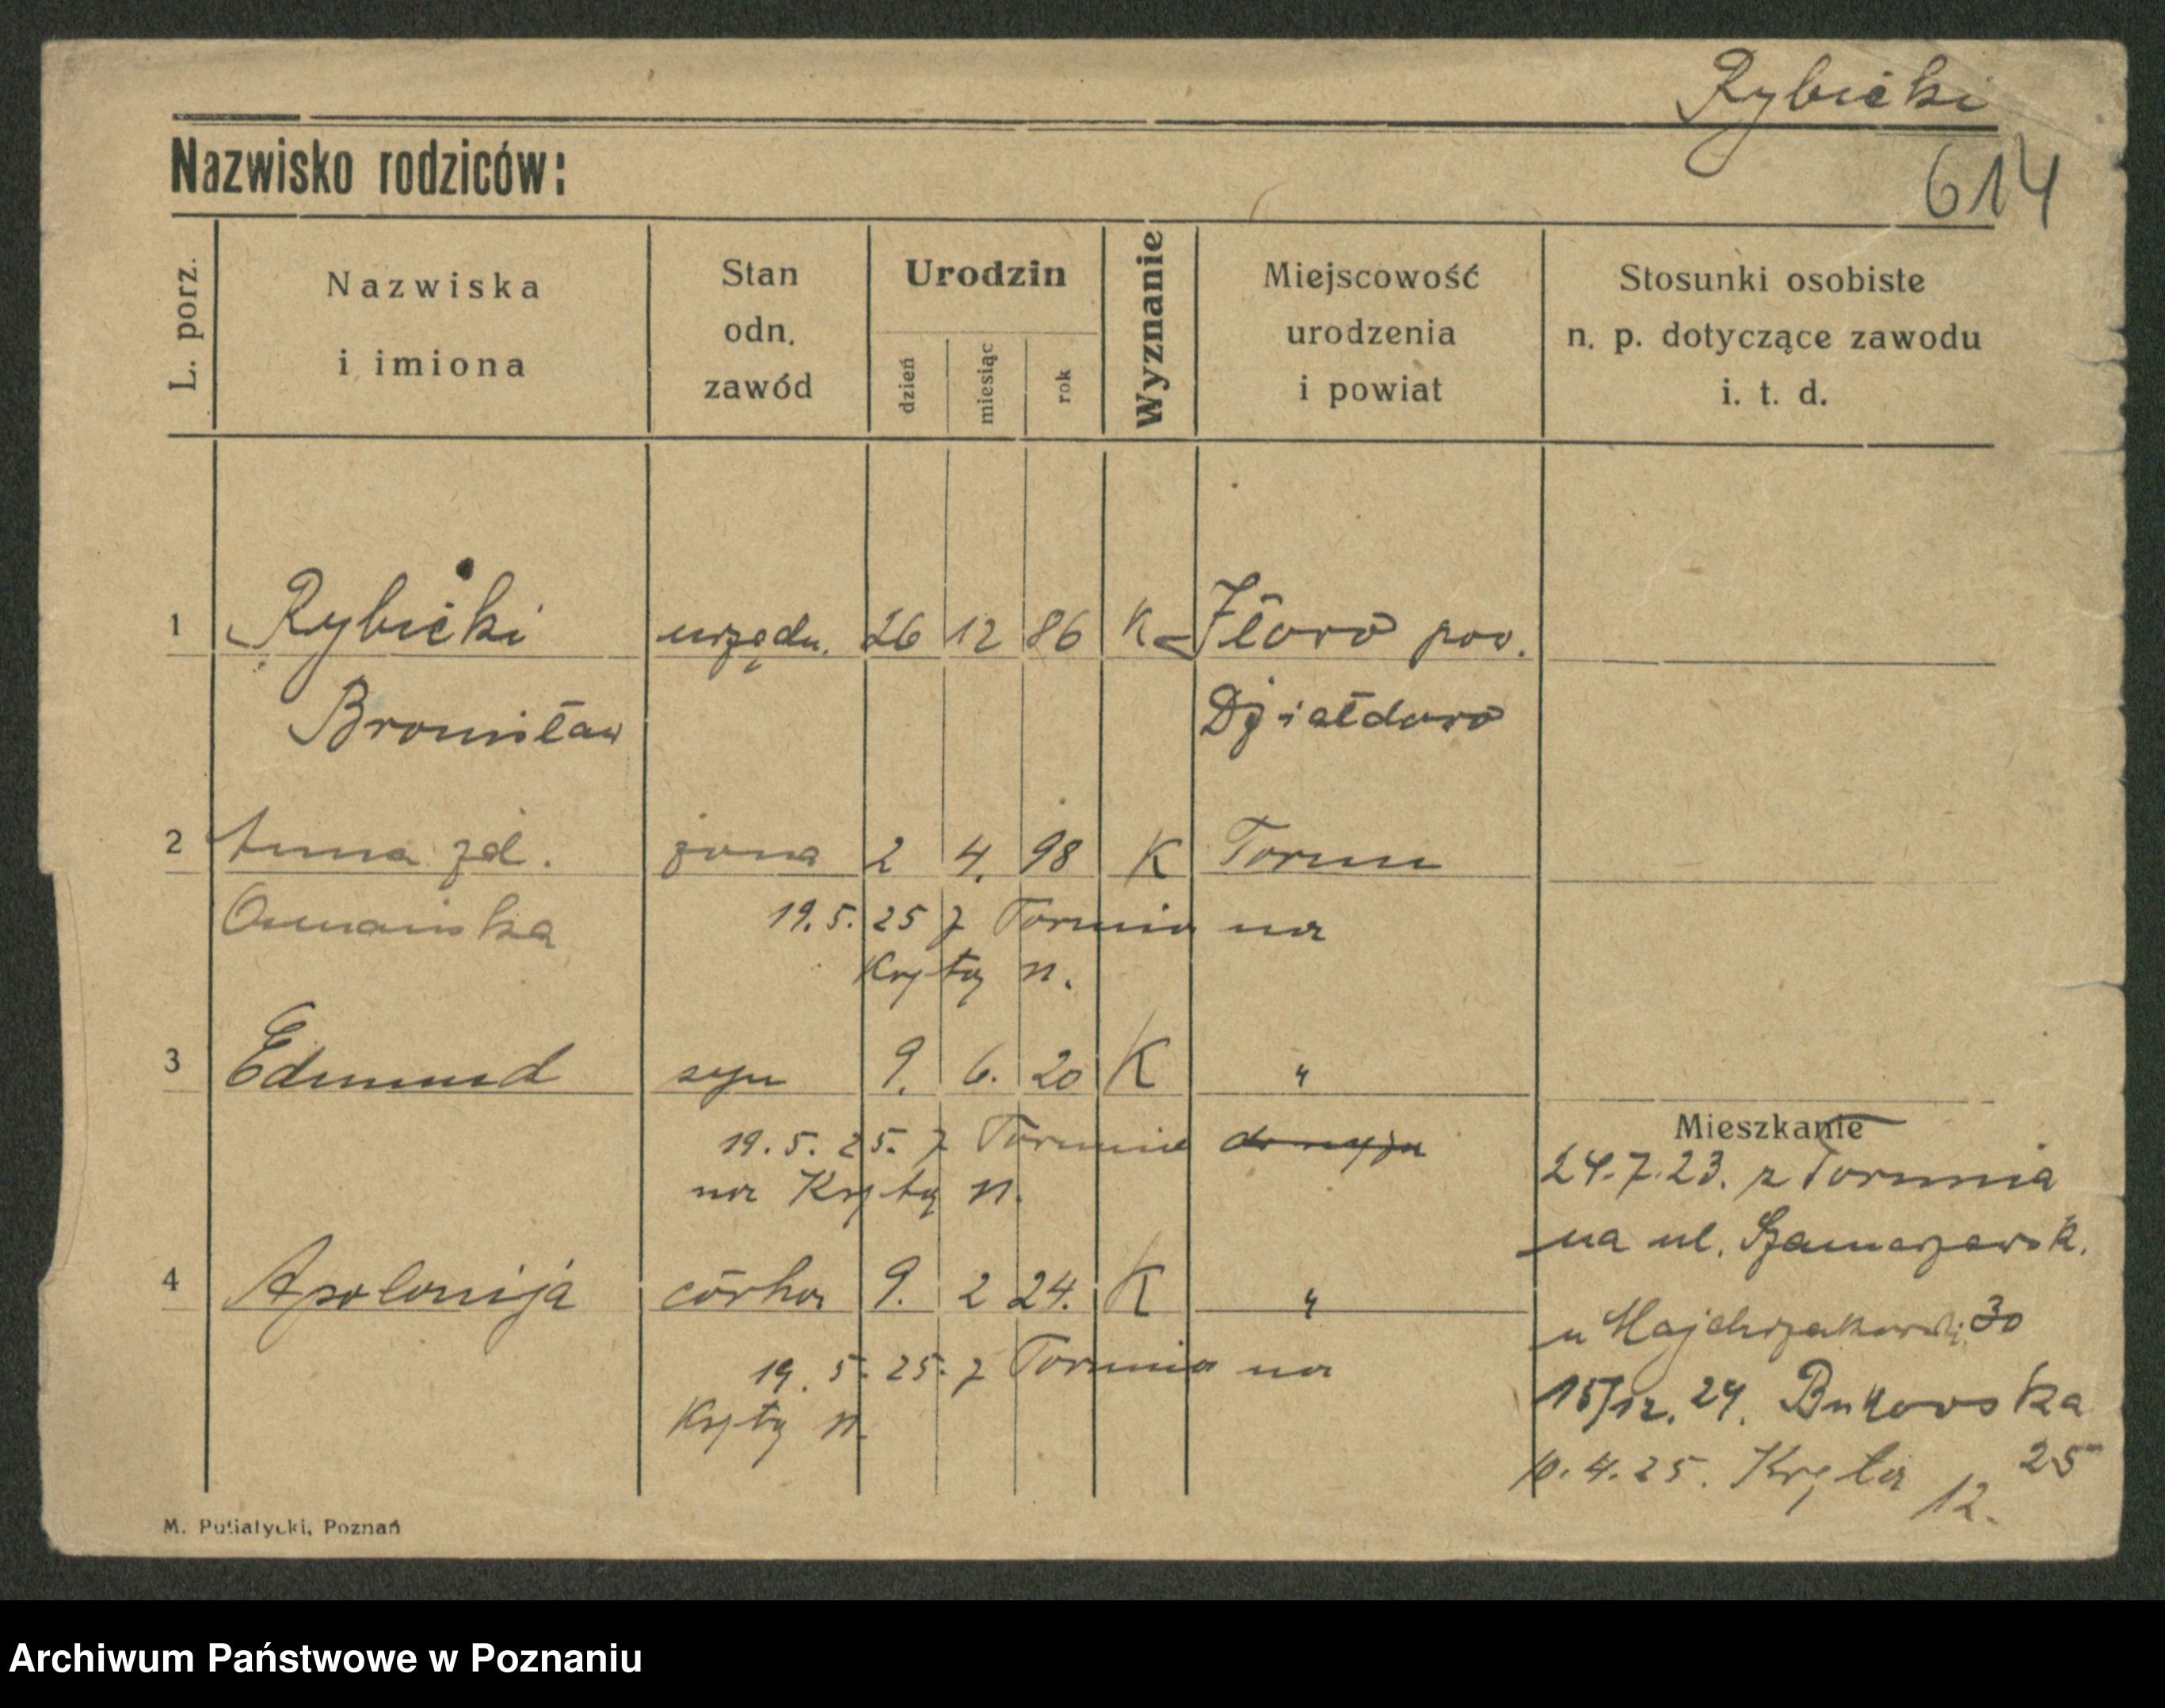 Rybicki
614
Nazwisko rodziców:
L. porz.
Nazwiska
i imiona
Stan
odn.
zawód
Urodzin
dzień
miesiąc
rok
Wyznanie
Miejscowość
urodzenia
i powiat
Stosunki osobiste
n. p. dotyczące zawodu
i. t. d.
1 Rybicki urzędn. 26 12 86 K pow.
Bronisław Działdowo
2 Anna zd. żona 2 4. 98 K Toruń
19.5.25 z Torunia na
n.
3 Edmund syn 9. 6. 20 K "
19.5.25. z Torunia
na n.
4 Apolonija córka 9. 2 24. K "
19.5.25. z Torunia na
n.
Mieszkanie
24.7.23. z Torunia
na ul. Szamarzewsk.
u 30
15/12.24. Bukowska
25
10.4.25. Kręta 12.
M. Putiatycki, Poznań
Archiwum Państwowe w Poznaniu